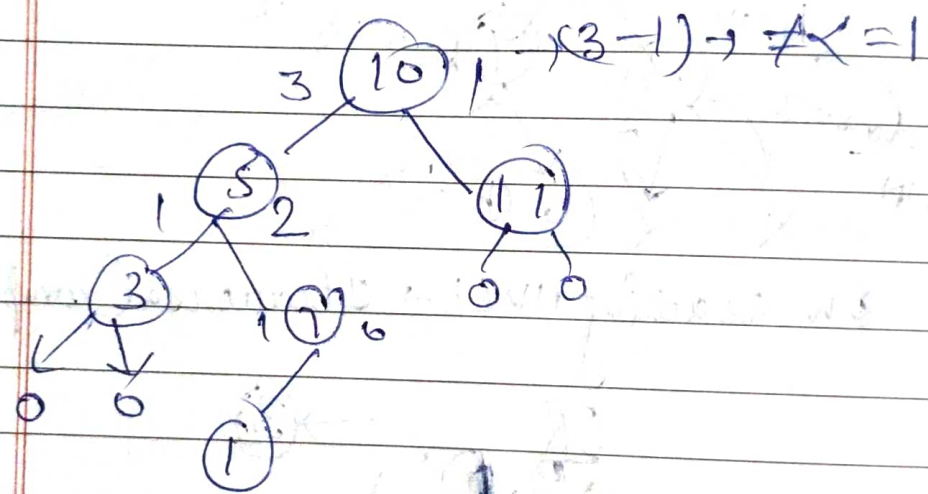 3 10 1 → (3-1) → ≠< = 1
1 5 2 11
0 0
3 1 7 0
0 0
1